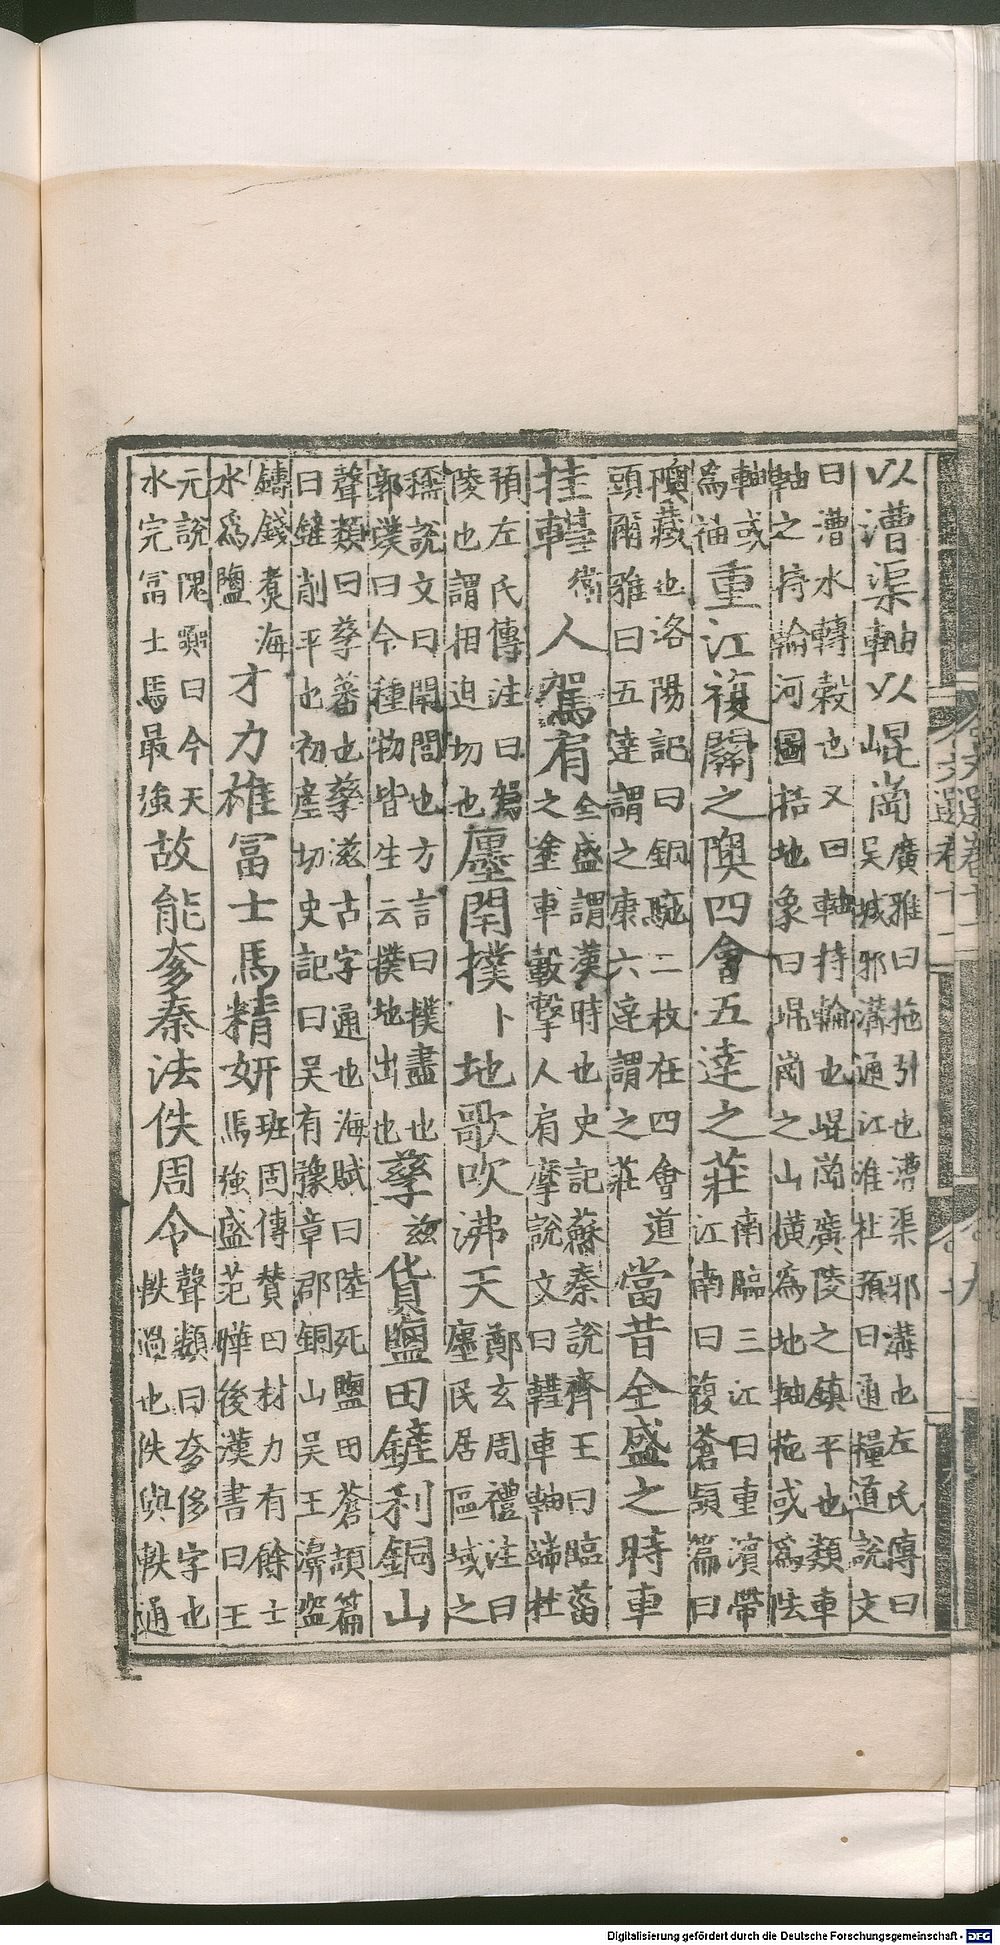 以漕渠軸以崐崗廣雅曰拖引也漕渠邪溝也左氏傳曰吳城邪溝通江淮杜預曰通糧道說文
曰漕水轉轂也又曰軸持輪也崐崗廣陵之鎮平也類車軸之持輪河圖括地象曰崐崗之山橫為地軸拖或為陁
軸或為袖重江複關之隩四會五達之莊南臨三江曰重濱帶江南曰複蒼頡篇曰
隩藏也洛陽記曰銅駝二枚在四會道頭爾雅曰五達謂之康六達謂之莊當昔全盛之時車
挂轊衛人駕肩全盛謂漢時也史記蘇秦說齊王曰臨菑之塗車轂擊人肩摩說文曰轊車軸端杜
預左氏傳注曰駕陵也謂相迫切也廛閈撲卜地歌吹沸天鄭玄周禮注曰廛民居區域之
稱說文曰閈閭也方言曰撲盡也郭璞曰今種物皆生云撲地出也孳茲貨鹽田鏟利銅山
聲類曰孳蕃也孳滋古字通也海賦曰陸死鹽田蒼頡篇曰鏟削平也初產切史記曰吳有豫章郡銅山吳王濞盜
鑄錢煮海水為鹽才力雄冨士馬精妍班固傳賛曰材力有餘士馬強盛范曄後漢書曰王
元說隗嚻曰今天水完冨士馬最強故能奓秦法佚周令聲類曰奓侈字也軼過也佚與軼通
Digitalisierung gefördert durch die Deutsche Forschungsgemeinschaft - DFG